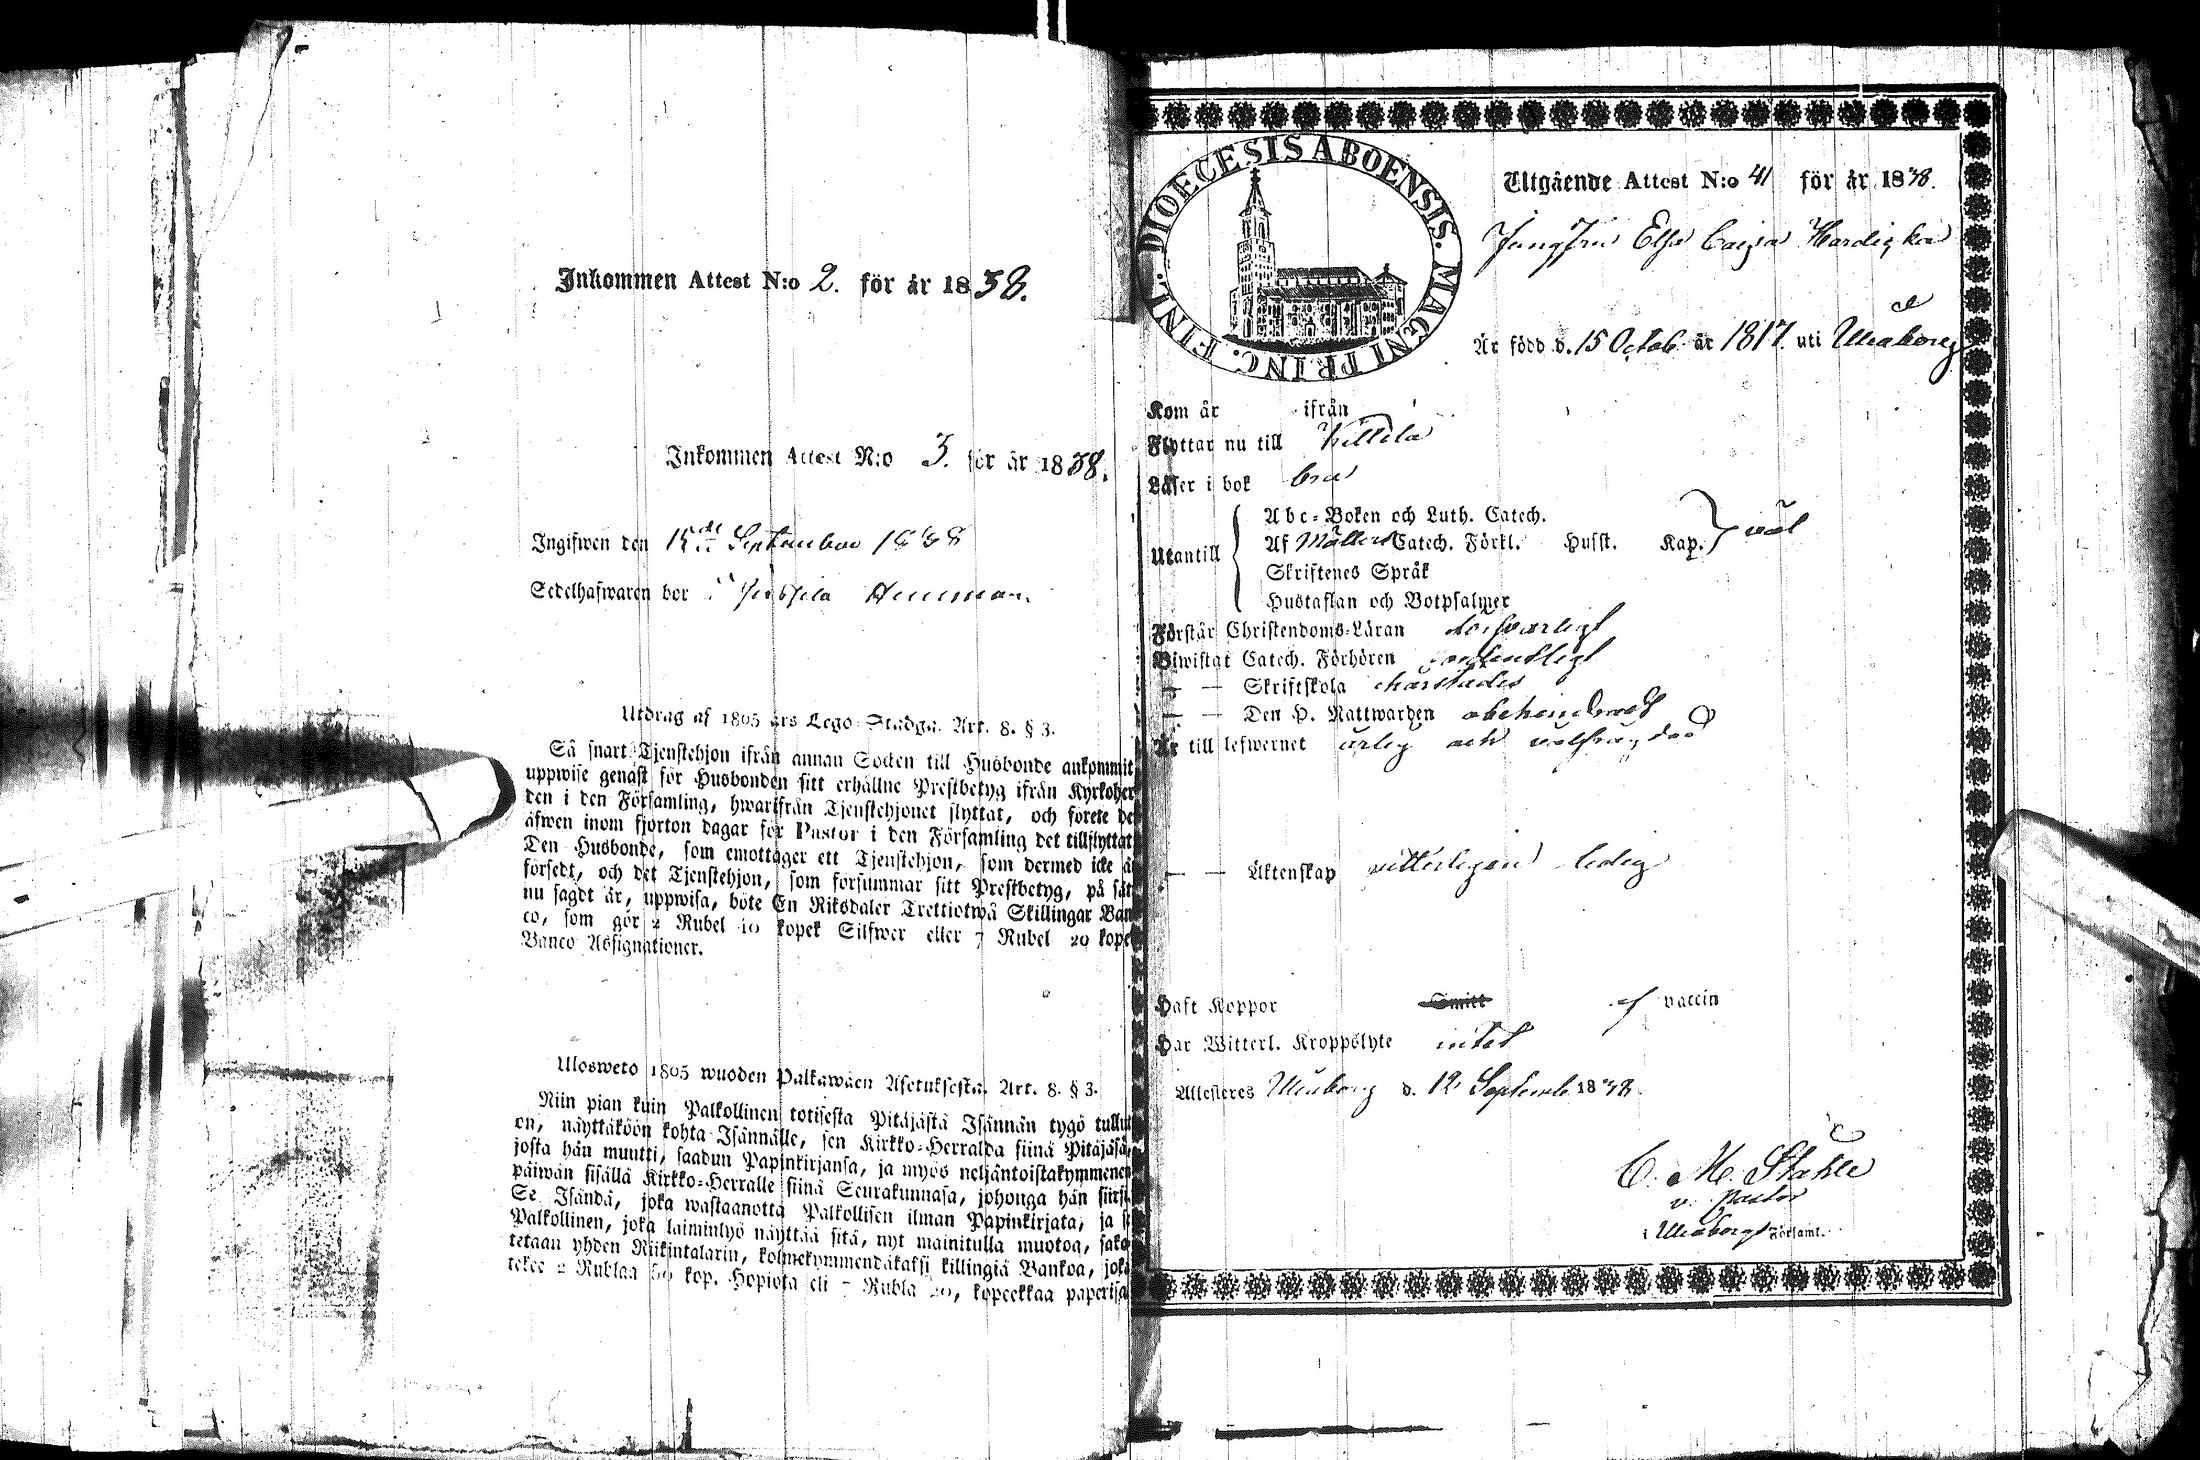 Inkommen Attest N:o 2. för år 1838.
Inkommen Attest N:o 3. för år 1838.
Ingifwen den 15de September 1838
Sedelhafwaren bor i
Utdrag af 1805 års Lego-Stadga. Art. 8. § 3.
Så snart Tjenstehjon ifrån annan Socken till Husbonde ankommit
uppwise genast för Husbonden sitt erhållne Prestbetyg ifrån Kyrkoher
den i den Församling, hwarifrån Tjenstehjonet flyttat, och förete det
äfwen inom fjorton dagar för Pastor i den Församling det tillflyttat
Den Husbonde, som emottager ett Tjenstehjon, som dermed icke är
försedt, och det Tjenstehjon, som försummar sitt Prestbetyg, på sätt
nu sagdt är, uppwisa, böte En Riksdaler Trettiotwå Skillingar Ban
co, som gör 2 Rubel 10 kopek Silfwer eller 7 Rubel 20 kopek
Banco Assignationer.
Ulosweto 1805 wuoden Palkawäen Asetuksesta. Art. 8. § 3.
Niin pian kuin Palkollinen totisesta Pitäjästä Isännän tygö tullut
on, näyttäköön kohta Isännälle, sen Kirkko-Herralda siinä Pitäjäsä,
josta hän muutti, saadun Papinkirjansa, ja myös neljäntoistakymmenen
päiwän sisällä Kirkko-Herralle siinä Seurakunnasa, johonga hän siirsi
Se Isändä, joka wastaanotta Palkollisen ilman Papinkirjata, ja se
Palkollinen, joka laiminlyö näyttää sitä, nyt mainitulla muotoa, sako
tetaan yhden Riikintalarin, kolmekymmendäkaksi killingiä Bankoa, joka
tekee 2 Rublaa kop. Hopiota eli 7 Rubla 20, kopeekkaa paperisa
DIOECESIS ABOENSIS. MAGNI PRINC. FINL.
Utgående Attest N:o 41 för år 1838.
Jungfru Elsa Caisa
Är född d. 15 Octob. år 1817. uti Uleåborg
Kom år ifrån
Flyttar nu till Kittilä
Läser i bok bra
Utantill
Abc-Boken och Luth. Catech.
Af Möllers Catech. Förkl. Husst. Kap. väl
Skriftenes Språk
Hustaflan och Botpsalmer
Förstår Christendoms-Läran försvarligt
Biwistat Catech. Förhören ordentligt
— — Skriftskola härstädes
— — Den H. Nattwarden obehindradt
Är till lefwernet ärlig och välfrägdad
— — Äktenskap vitterligen ledig
Haft Koppor Smitt af vaccin
Har Witterl. Kroppslyte intet
Attesteres Uleåborg d. 12 Septemb. 1838.
C. M. Ståhle
v. Pastor
i Uleåborgs Församl.